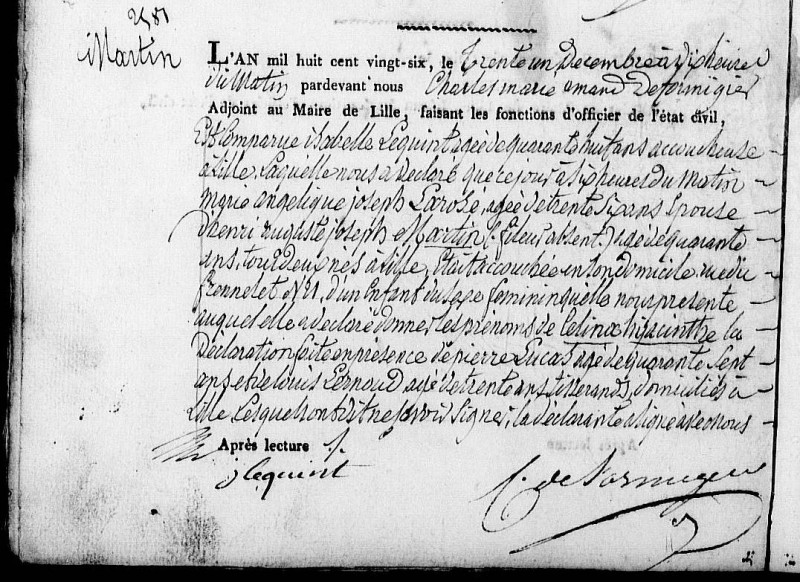 Martin
L'AN mil huit cent vingt-six, le Trente un Decembre à dix heures
du Matin pardevant nous Charles marie amand Deformigier
Adjoint au Maire de Lille, faisant les fonctions d'officier de l'état civil,
Est Comparue isabelle Lequint agée de quarante huit ans accoucheuse
à Lille, Laquelle nous a declaré que cejour à Six heures du Matin
marie angelique joseph Larose, agée de trente Six ans Epouse
d'henri auguste joseph Martin (fileur absent) agé de quarante
ans, tous deux nés à Lille, Etait accouchée en son domicile rue du
fronnelet N° 21, d'un Enfant du sexe feminin qu'elle nous presente
auquel elle a declaré donner les prénoms de Celina hyacinthe la
Déclaration faite en présence de pierre Lucas agé de quarante Sept
ans et de louis Lernoud agé de trente ans, tisserands, domiciliés à
Lille Lesquels ont dit ne savoir signer, la declarante a signé avec nous
Après lecture ./.
J lequint
C. de formigier